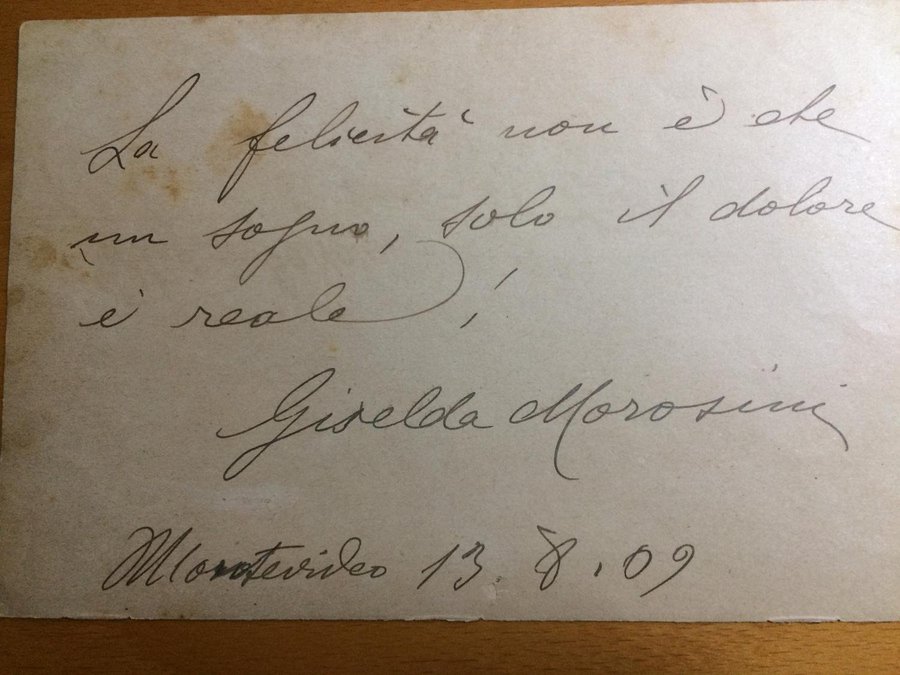 La felicità non è che
un sogno, solo il dolore
è reale!
Giselda Morosini
Montevideo 13.8.09